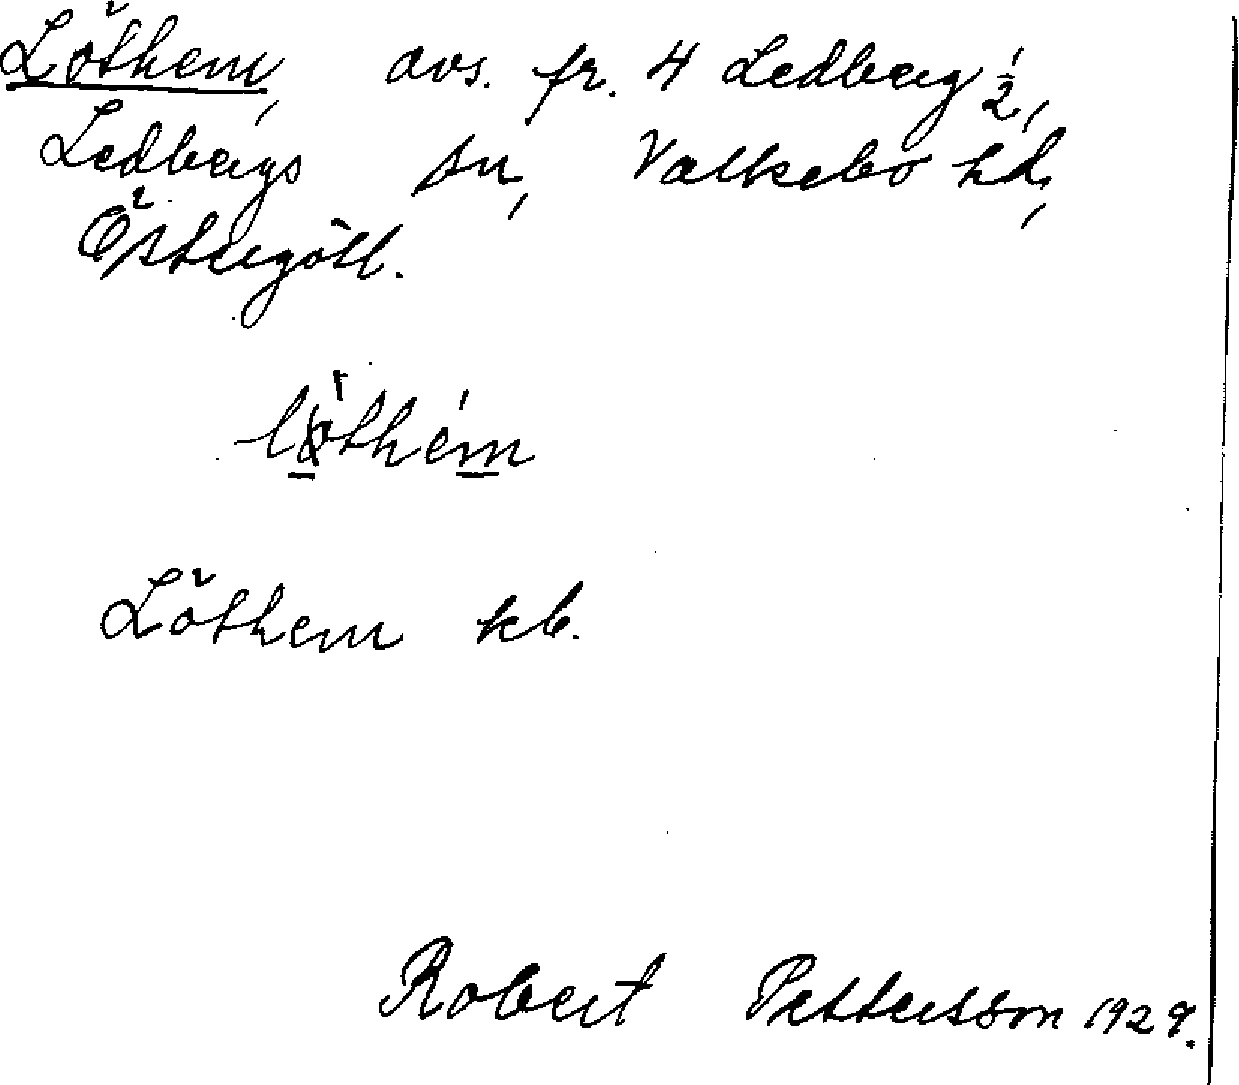 Löthem, avs. fr. 4 Ledberg 1/2,
Ledbergs sn, Valkebo hd,
Östergötl.
löthém
Löthem kb.
Robert Pettersson 1929.